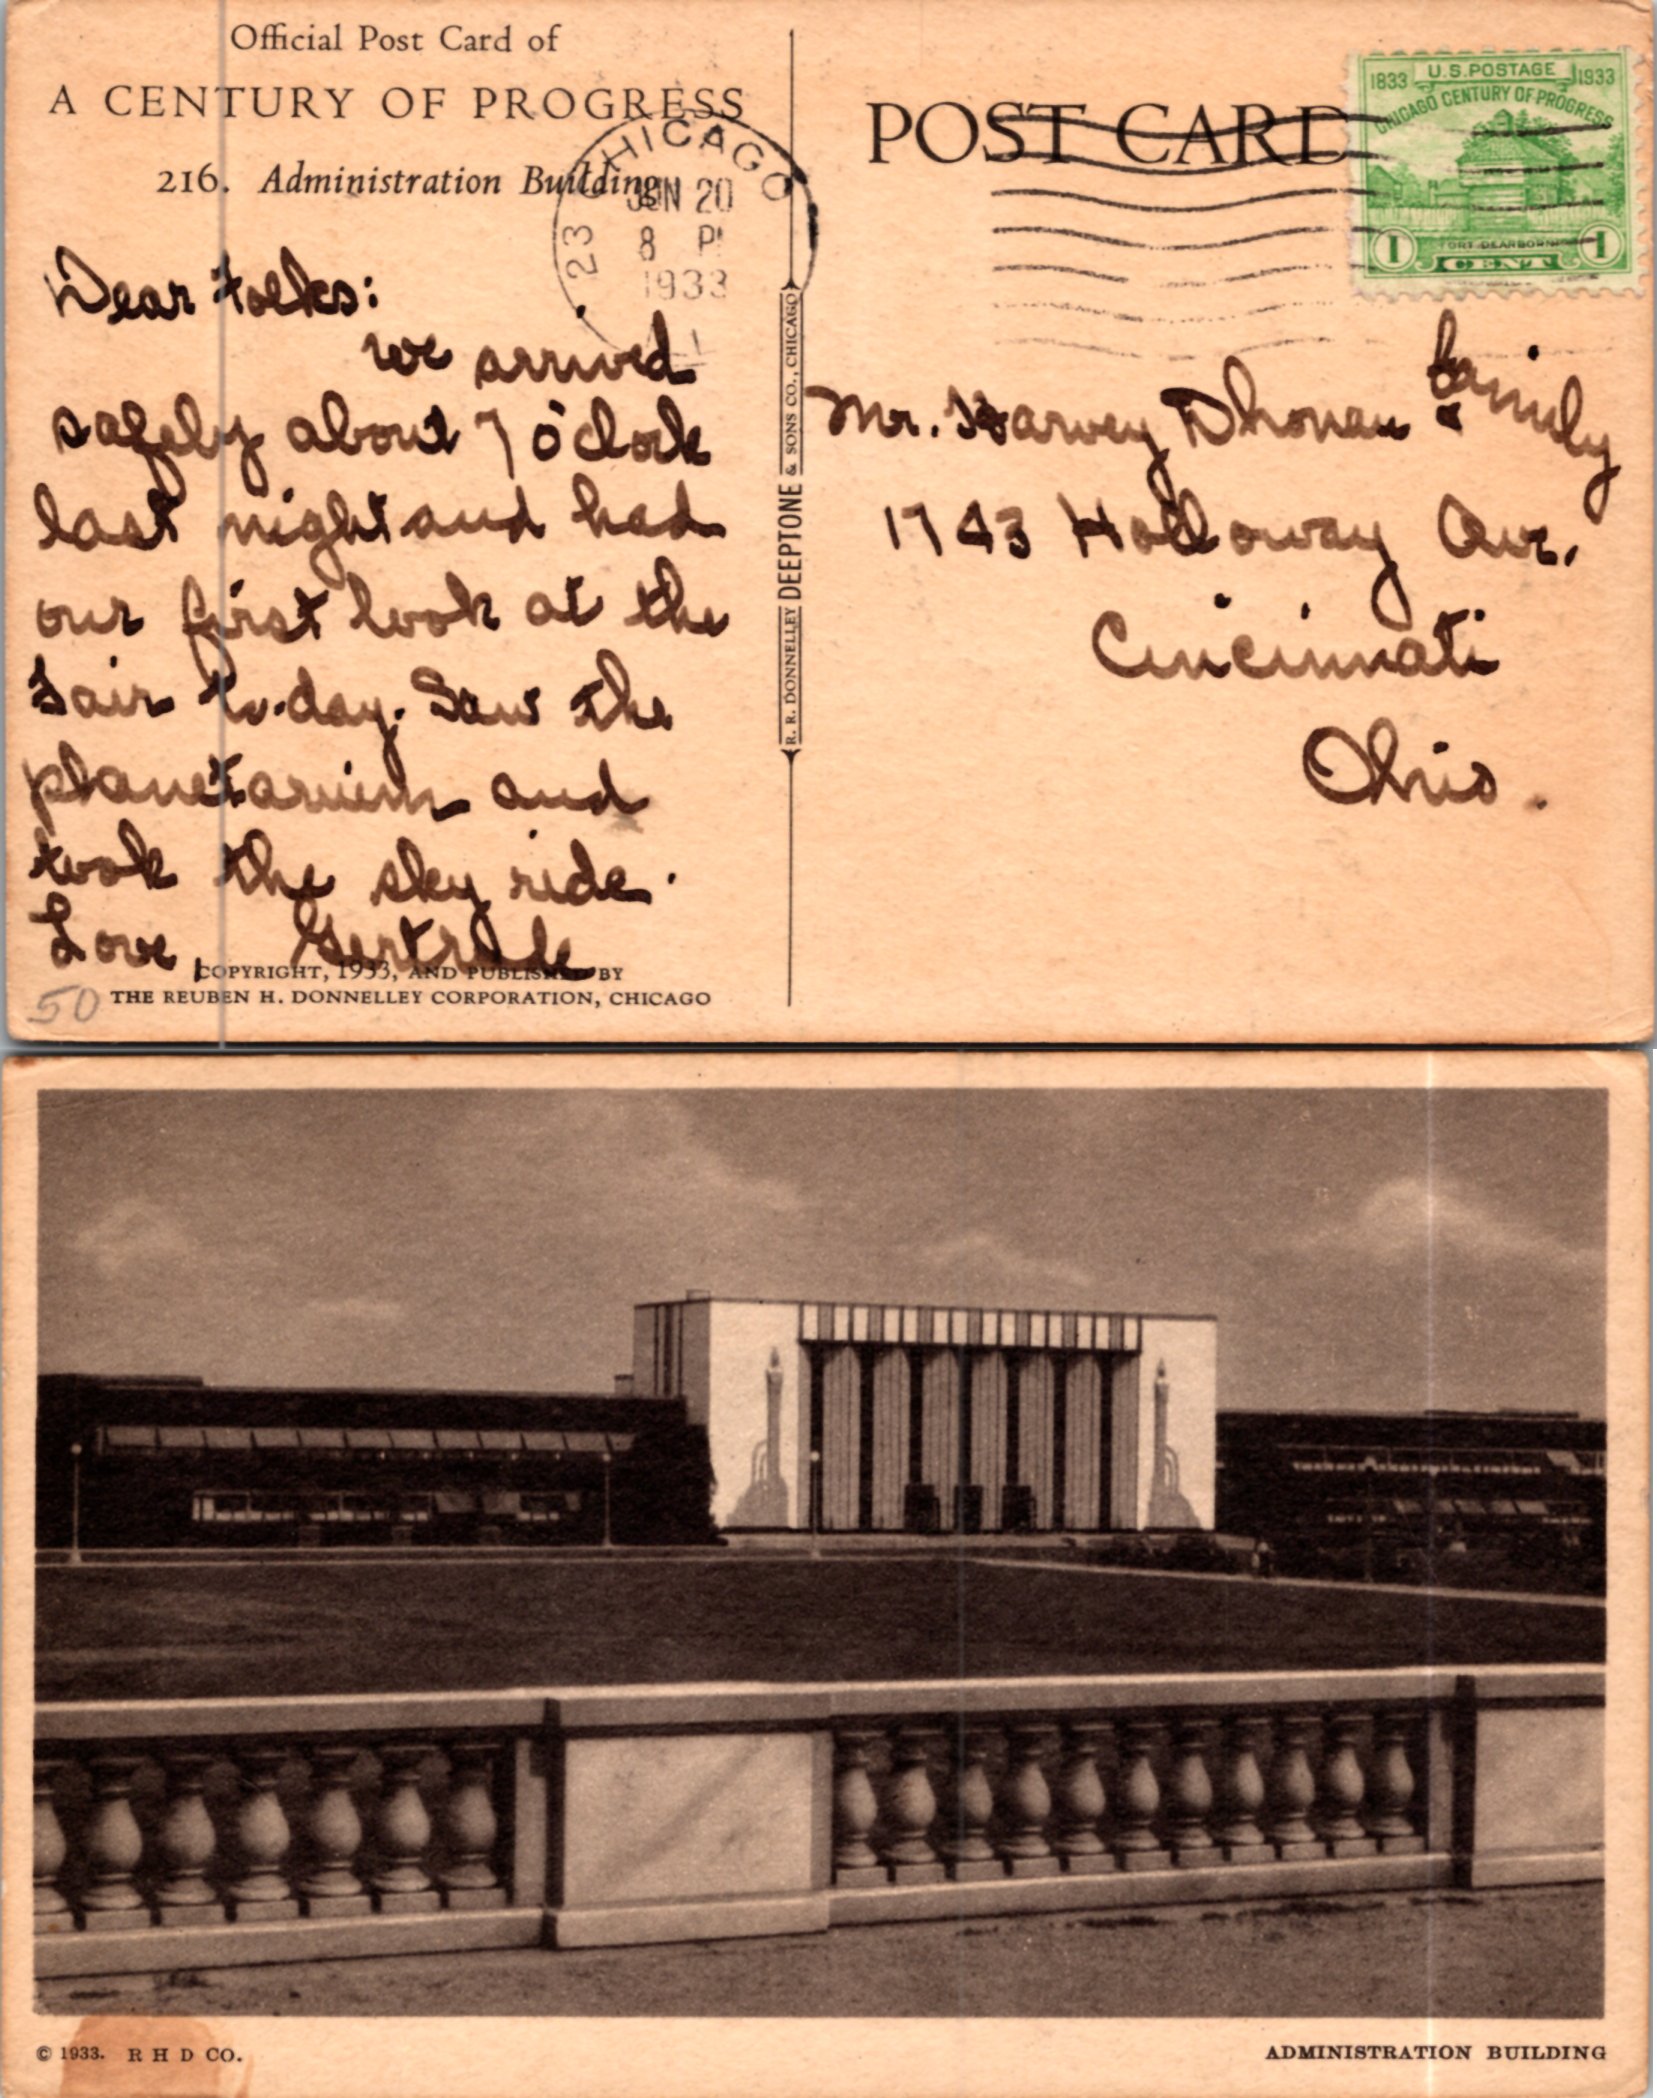 Official Post Card of
A CENTURY OF PROGRESS
216. Administration Building
CHICAGO
23
JUN 20
8 P
1933
Dear Folks:
we arrived
safely about 7 o'clock
last night and had
our first look at the
Fair to-day. Saw the
planetarium and
took the sky ride.
Love, Gertrude
COPYRIGHT, 1933, AND PUBLISHED BY
THE REUBEN H. DONNELLEY CORPORATION, CHICAGO
50
R. R. DONNELLEY DEEPTONE & SONS CO., CHICAGO
POST CARD
1833 U.S. POSTAGE 1933
CHICAGO CENTURY OF PROGRESS
FORT DEARBORN
1 CENT 1
Mr. Harvey & family
1743 Holloway Ave.
Cincinnati
Ohio.
© 1933. R H D CO.
ADMINISTRATION BUILDING